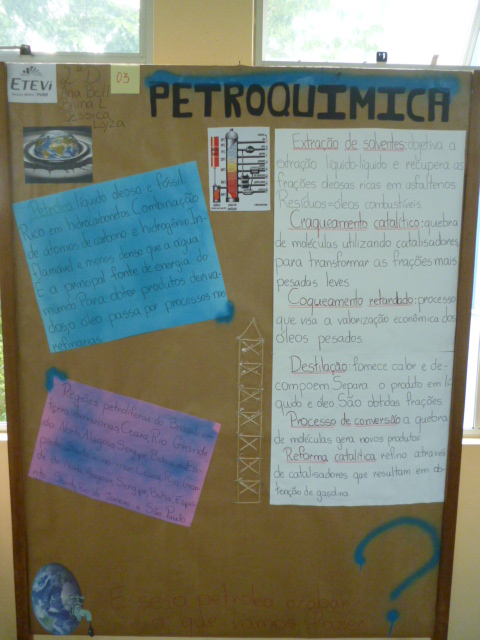 ETEVI
2ª D
Ana Beat
Bruna L
Jessica
Lyza
03
PETROQUIMICA
Petróleo líquido oleoso e fóssil
Rico em hidrocarbonetos Combinação
de átomos de carbono e hidrogênio. In-
flamável e menos denso que a água
É a principal fonte de energia do
mundo. Para obter produtos deriva-
dos, o óleo passa por processos nas
refinarias
Extração de solventes: objetiva a
extração líquido-líquido e recupera as
frações oleosas ricas em asfaltenos
Resíduos = óleos combustíveis
Craqueamento catalítico: quebra
de moléculas utilizando catalisadores
para transformar as frações mais
pesadas leves
Coqueamento retardado: processo
que visa a valorização econômica dos
óleos pesados.
Destilação: fornece calor e de-
compoem Separa o produto em lí
quido e óleo São obtidas frações
Processo de conversão: a quebra
de moléculas gera novos produtos
Reforma catalítica refino através
de catalisadores que resultam em ob-
tenção de gasolina
Regiões petrolíferas do Brasil em
terra Ceará, Rio Grande
do Norte, Alagoas, Sergipe
Sergipe, Bahia, Espí-
Rio de Janeiro e São Paulo
?
E se o petróleo acabar
o que vamos fazer